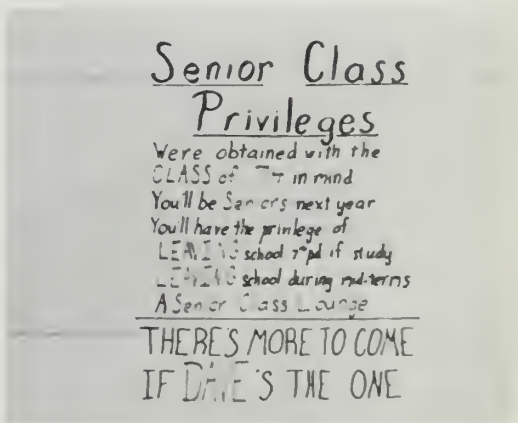 Senior Class
Privileges
Were obtained with the
CLASS of in mind
You'll be Seniors next year
You'll have the privilege of
LEAVING school 7th pd if study
LEAVING school during mid-terms
A Senior Class Lounge
THERE'S MORE TO COME
IF DAVE'S THE ONE